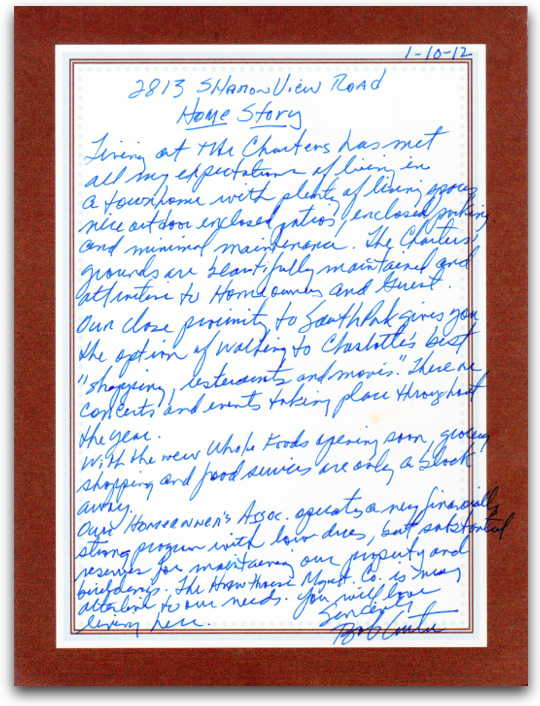 1-10-12
2813 Sharon View Road
Home Story
Living at the Charters has met
all my expectations of living in
a townhome with plenty of living space,
nice outdoor enclosed patios, enclosed parking
and minimal maintenance. The Charters'
grounds are beautifully maintained and
attractive to Homeowners and Guest.
Our close proximity to SouthPark gives you
the option of walking to Charlotte's best
"shopping, restaurants and movies." There are
concerts and events taking place throughout
the year.
With the new Whole Foods opening soon, grocery
shopping and food services are only a block
away.
Our Homeowner's Assoc. operates a very financially
strong program with low dues, but substantial
reserves for maintaining our property and
buildings. The Hawthorne Mgmt. Co. is very
attentive to our needs. You will love
living here.
Sincerely
Bob